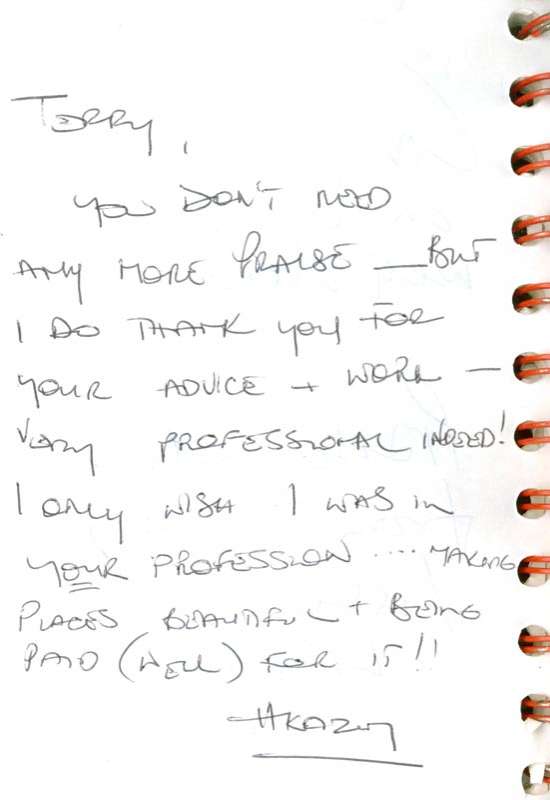 Terry,
you DON'T NEED
ANY MORE PRAISE — BUT
I DO THANK you FOR
YOUR ADVICE + WORK —
VERY PROFESSIONAL INDEED!
I ONLY WISH I WAS IN
YOUR PROFESSION .... MAKING
PLACES BEAUTIFUL + BEING
PAID (WELL) FOR IT!!